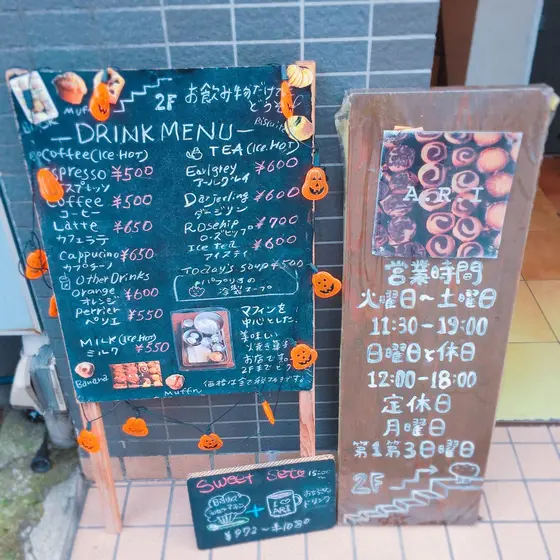 2F
お飲み物だけでも
どうぞ
Muffin
Biscuit
— DRINK MENU —
Coffee (Ice. HOT)
Espresso ¥500
エスプレッソ
Coffee ¥500
コーヒー
Latte ¥650
カフェラテ
Cappucino ¥650
カプチーノ
Other Drinks
Orange ¥600
オレンジ
Perrier ¥550
ペリエ
MILK (Ice. HOT)
ミルク ¥550
TEA (Ice. HOT)
Earlgrey ¥600
アールグレイ
Darjeeling ¥600
ダージリン
Rosehip ¥700
ローズヒップ
Ice Tea ¥600
アイスティ
Today's Soup ¥500
冷製スープ
マフィンを
中心とした
美味しい
焼き菓子
お店です
2Fまでどうぞ
Banana
Muffin
価格は全て税込です。
SWEET SET
15:00
+
ECO
ARI
ドリンク
¥972〜¥1080
ARI
営業時間
火曜日〜土曜日
11:30-19:00
日曜日と休日
12:00-18:00
定休日
月曜日
第1第3日曜日
2F